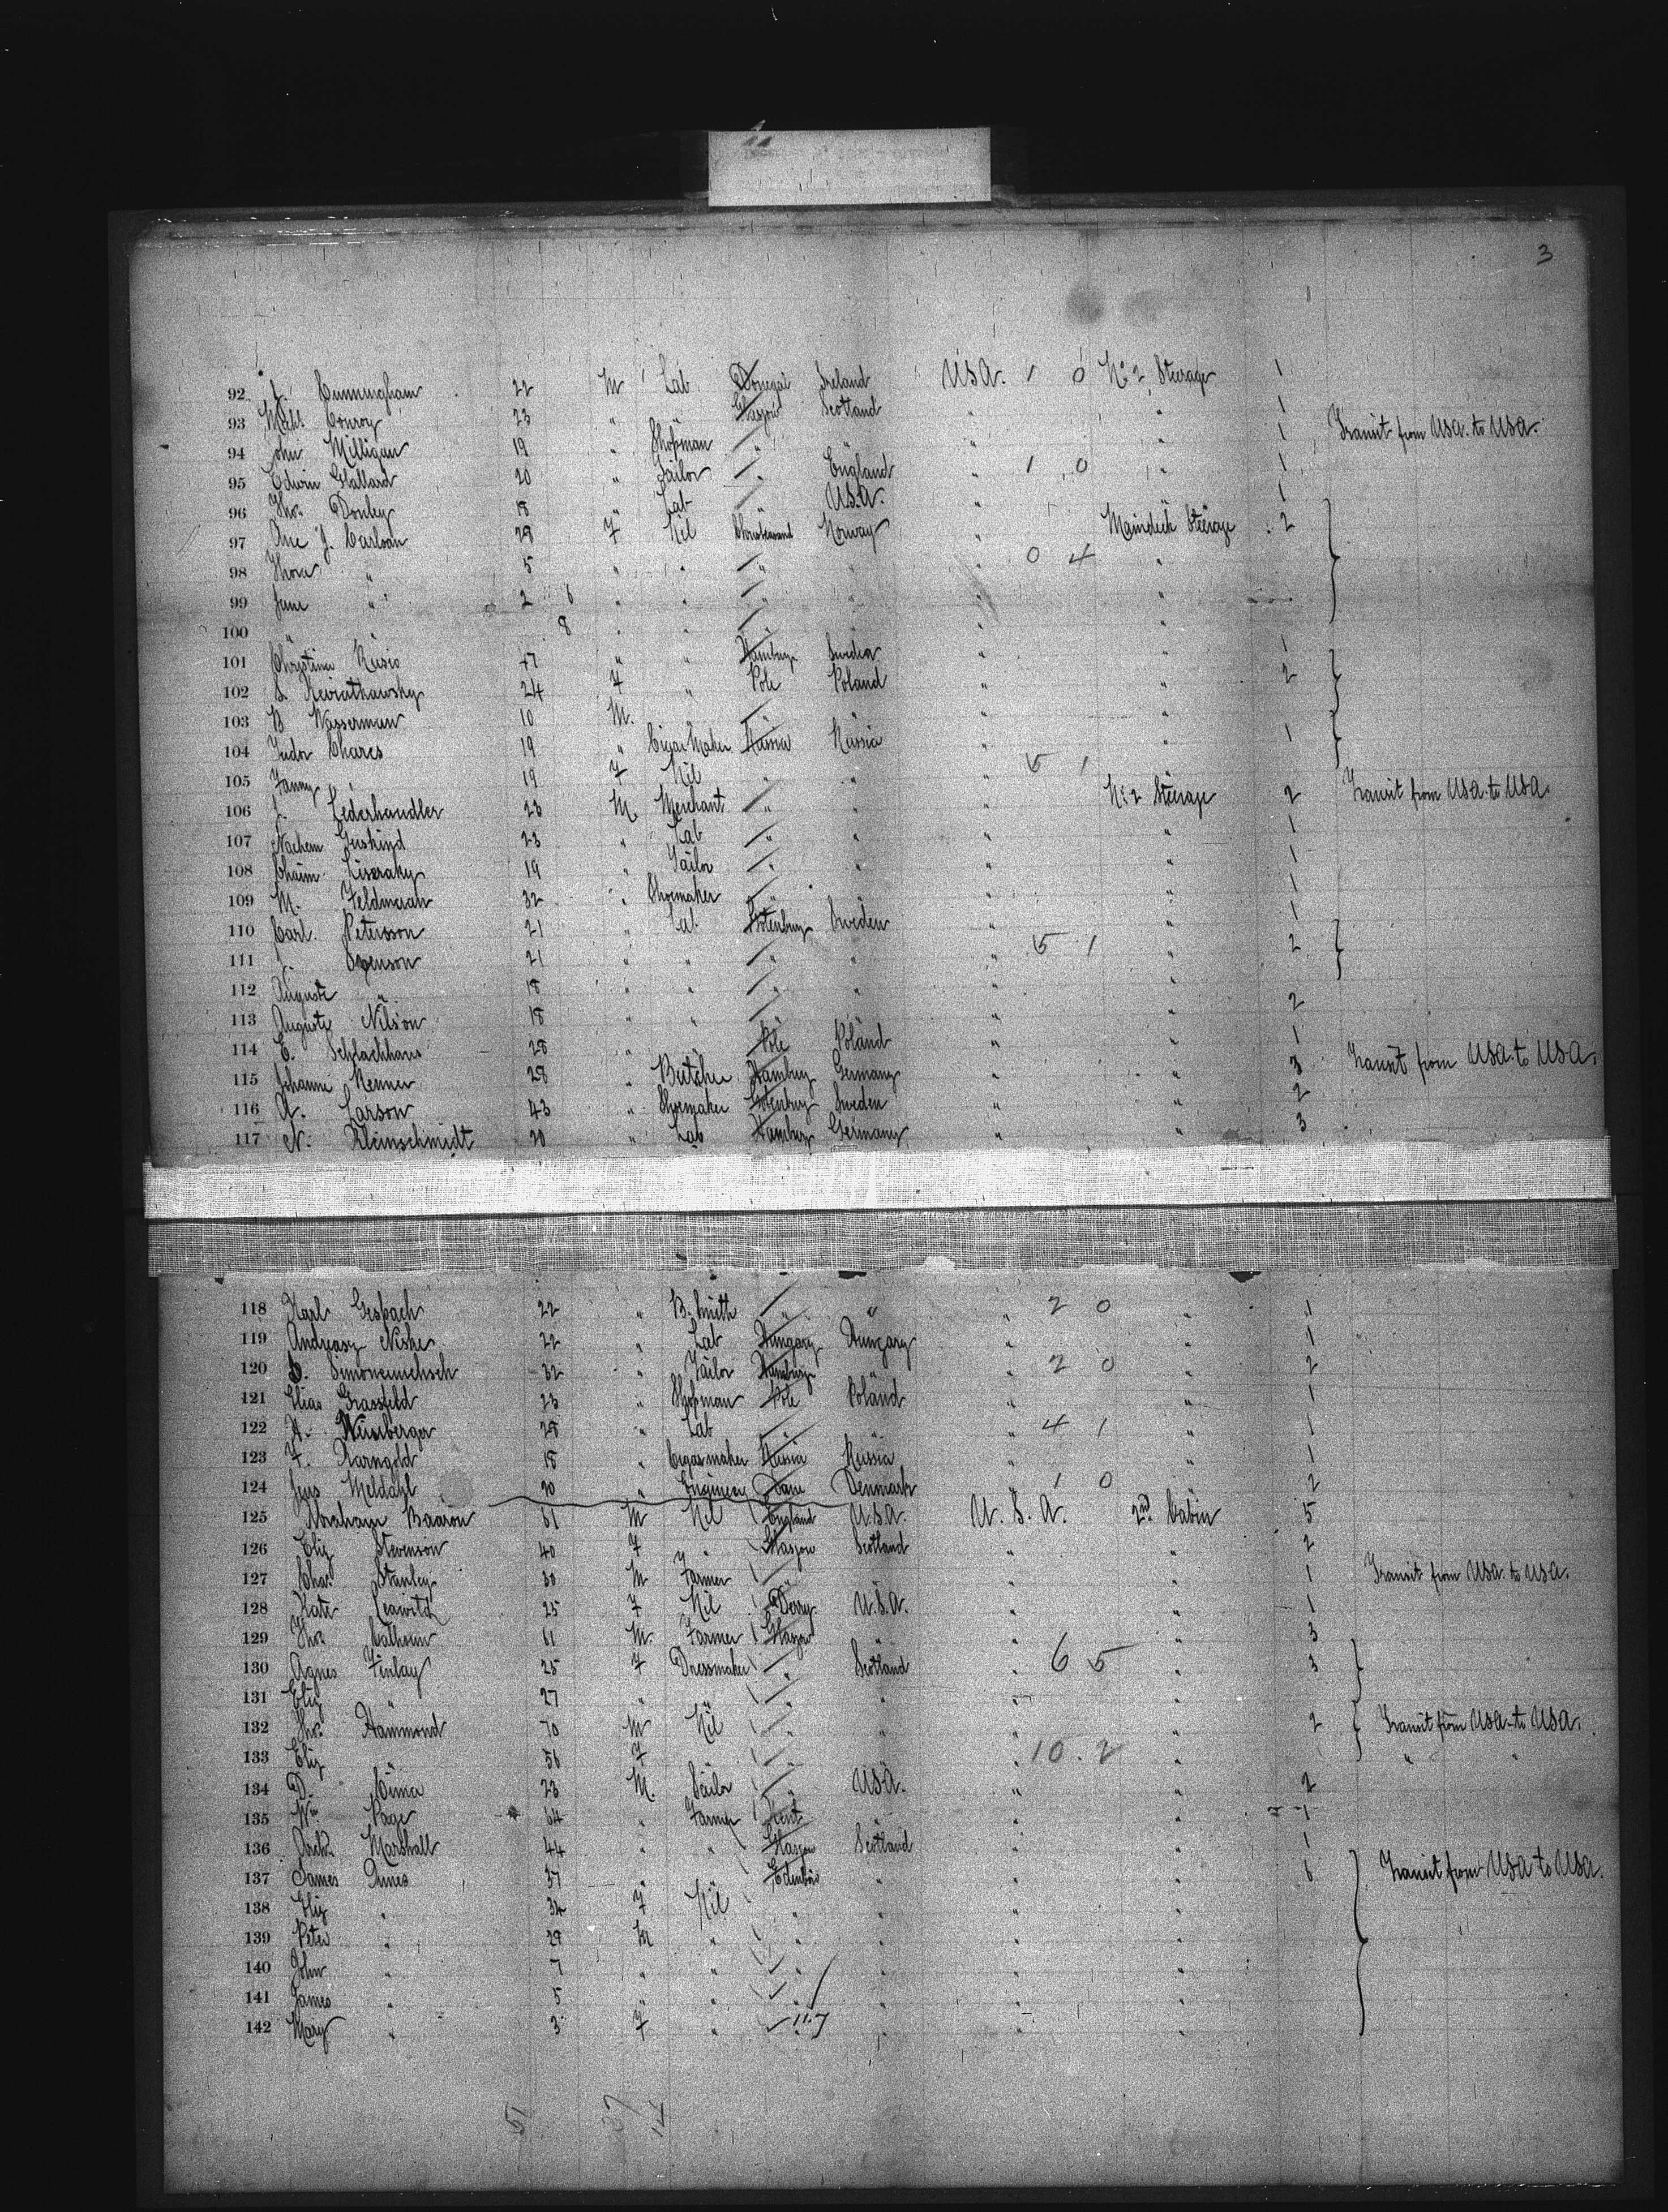 3
92 J. Cunningham 22 M Lab Donegal Ireland USA. 1 0 No 2 Steerage 1
93 Michl. Conroy 23 " " Glasgow Scotland " " 1
94 John Milligan 19 " Shopman " " " " 1 Transit from USA. to USA.
95 Edwin Gallard 20 " Sailor " England " 1 0 " 1
96 Thos. Donley 18 " Lab " USA. " " 1
97 Ane J. Carlson 28 F Nil Christiansand Norway " Maindeck Steerage 2
98 Thora " 5 " " " " " 0 4 "
99 Jane " 2 6 " " " " " "
100 " 8 " " " " " "
101 Christina 47 " " Hamburg Sweden " " 1
102 S. 24 F " Pole Poland " " 2
103 B Wasserman 10 M. " " "
104 Chares 19 " Cigar Maker Russia Russia " " 1
105 Fanny " 19 F Nil " " " 5 1 "
106 J. Lederhandler 23 M. Merchant " " " No 2 Steerage 2 Transit from USA. to USA.
107 Nachem 23 " Lab " " " " 1
108 Chaim 19 " Tailor " " " " 1
109 M. Feldmann 32 " Shoemaker " " " " 1
110 Carl. Petersson 21 " Lab. Gotenburg Sweden " " 1
111 Svenson 21 " " " " " 5 1 " 2
112 Auguste " 18 " " " " " "
113 Auguste Nilson 18 " " " " " " 2
114 E. Schlachhaus 28 " " Pole Poland " " 1
115 Johann Renner 28 " Butcher Hamburg Germany " " 3 Transit from USA. to USA.
116 A. Larson 43 " Shoemaker Gotenburg Sweden " " 2
117 N. Kleinschmidt 20 " Lab Hamburg Germany " " 3
118 Karl Gesbach 22 " B. Smith " " " 2 0 " 1
119 Andreasz 22 " Lab Hungary Hungary " " 1
120 32 " Tailor Hamburg " " 2 0 " 2
121 Elias Grassfeld 23 " Shopman Pole Poland " " 1
122 A. Nürnberger 28 " Lab " " " 4 1 " 1
123 F. Karngold 18 " Cigarmaker Russia Russia " " 1
124 Jens Meldahl 20 " Engineer Dane Denmark " 1 0 " 2
125 Abraham Baaron 51 M Nil England U.S.A. U. S. A. 2nd Cabin 5
126 Eliz Stevenson 40 F " Glasgow Scotland " " 2
127 Chas. Stanley 30 M Farmer " " " " 1 Transit from USA. to USA.
128 Kate Leawitz 25 F Nil Derry U.S.A. " " 1
129 Thos Calhoun 61 M. Farmer Glasgow " " " 3
130 Agnes Finlay 25 F Dressmaker " Scotland " 6 5 " 3
131 Eliz " 27 " " " " " "
132 Thos. Hammond 70 M Nil " " " " 2 Transit from USA. to USA.
133 Eliz " 56 F " " " " 10. 2 " " "
134 D. 23 M. Sailor " USA. " " 2
135 Wm Page 64 " Farmer Kent " " " 1
136 Archd. Marshall 44 " " Glasgow Scotland " " 1
137 James Innes 37 " " Edinboro " " " 6 Transit from USA to USA.
138 Eliz " 34 F Nil " " " "
139 Peter " 29 M " " " " "
140 John " 7 " " " " " "
141 James " 5 " " " " " "
142 Mary " 3 F " " " " "